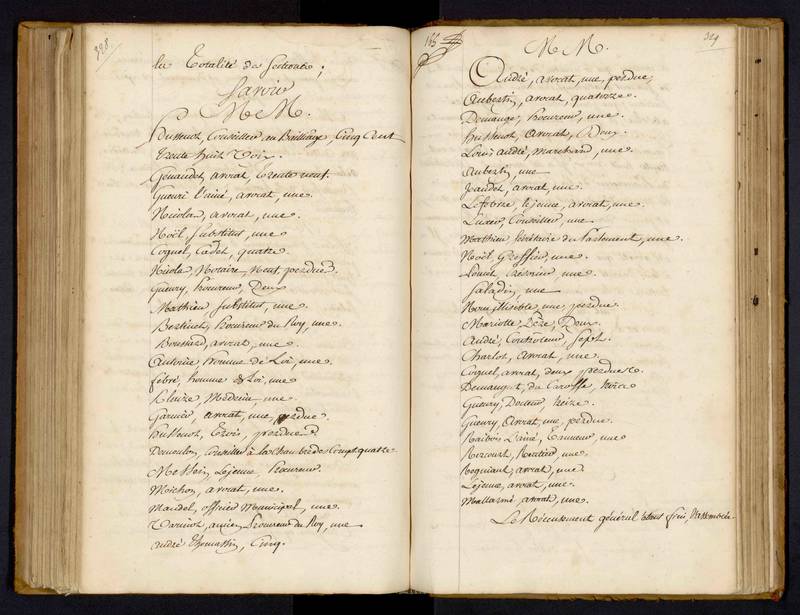 328
la Totalité des Sections;
Savoir
M M.
Dussenot, Conseiller au Bailliage, Cinq Cent
Trente huit Voix.
Genaudet, avocat, Trente neuf.
Gueury l'ainé, avocat, une.
Nicolas, avocat, une.
Noël, Substitut, une
Coquel, Cadet, quatre
Nicolas, Notaire, Neuf, perdue.
Gueury, procureur, Deux
Mathieu Substitut, une
Procureur du Roy, une.
avocat, une
Antoine homme de Loi, une
Febvé, homme de Loi, une
Médecin, une
Garnier, avocat, une, perdue.
Hussenot, Trois, perdues
Conseiller à la Chambre des Comptes, quatre
Messein, Lejeune, Procureur.
Michon, avocat, une.
Mandel, officier Municipal, une.
ancien Procureur du Roy, une
André Thomassin, Cinq.
329
M M.
André, avocat, une, perdue,
Aubertin, avocat, quatorze.
Demange, procureur, une.
Hussenot, avocat, Deux.
Louis André, marchand, une.
Aubertin, une
Jeandel, avocat, une
Lefebvre, Lejeune, avocat, une
Conseiller, une
Matthieu, Secrétaire du Parlement, une.
Noël, Greffier, une.
une
Saladin, une
Nom illisible, une, perdue.
Mariotte, Père, Deux
André, Controleur, Sept.
Charlot, avocat, une.
Coquel, avocat, deux perdues.
Demangeot, du Carosse, treize
Gueury, Docteur, treize.
Gueury, avocat, une, perdue.
L'ainé, Tanneur, une
Rentier, une
avocat, une
Lejeune, avocat, une.
Mallarmé, avocat, une.
Le Récensement général étant fini, l'assemblée